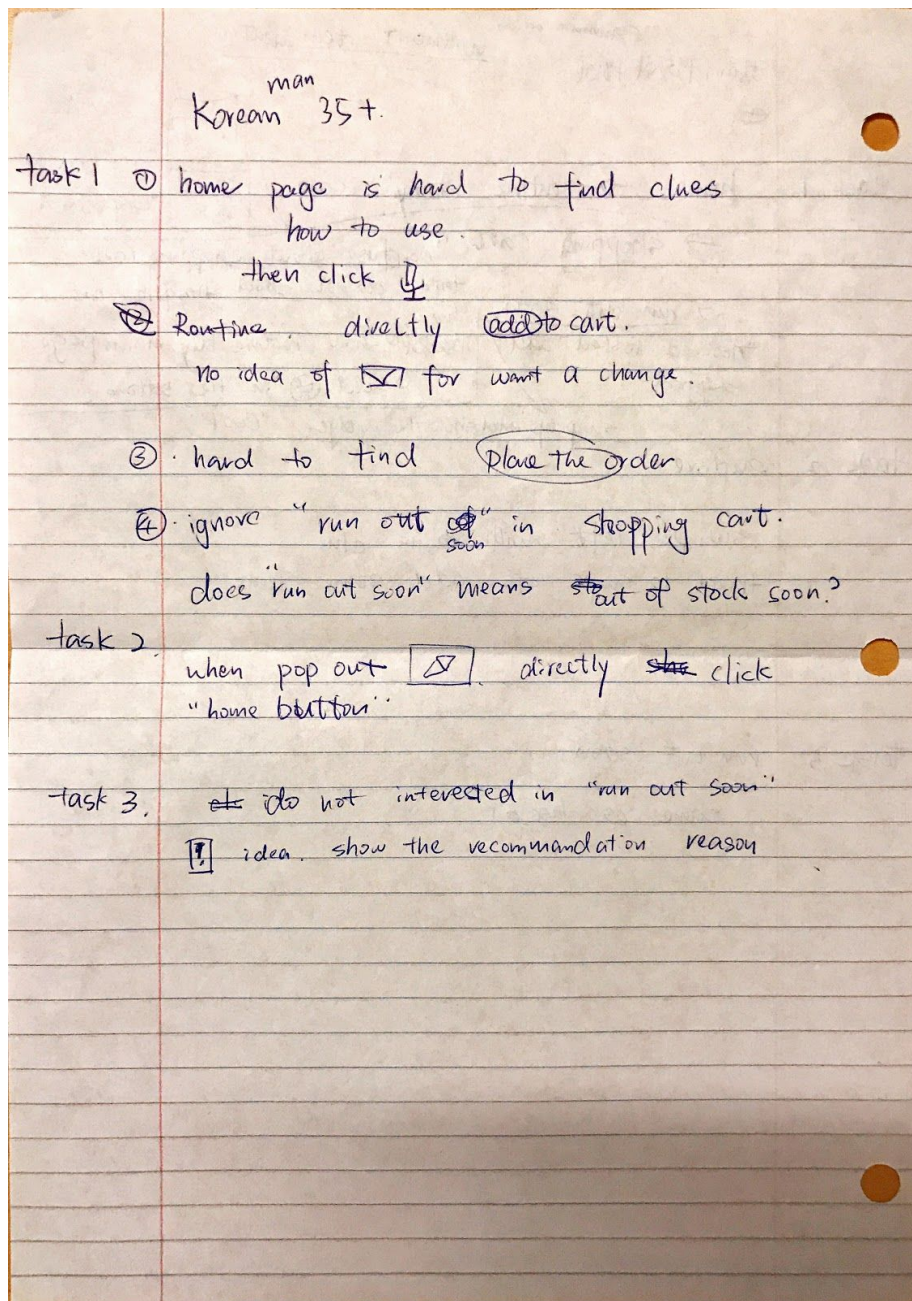 man
Korean 35+.
task 1 ① home page is hard to find clues
how to use.
then click
② Routine. directly add to cart.
no idea of for want a change.
③. hard to find place the order
④. ignore "run out soon" in shopping cart.
does "run out soon" means out of stock soon?
task 2.
when pop out directly click
"home button"
task 3. do not interested in "run out soon"
! idea. show the recommandation reason